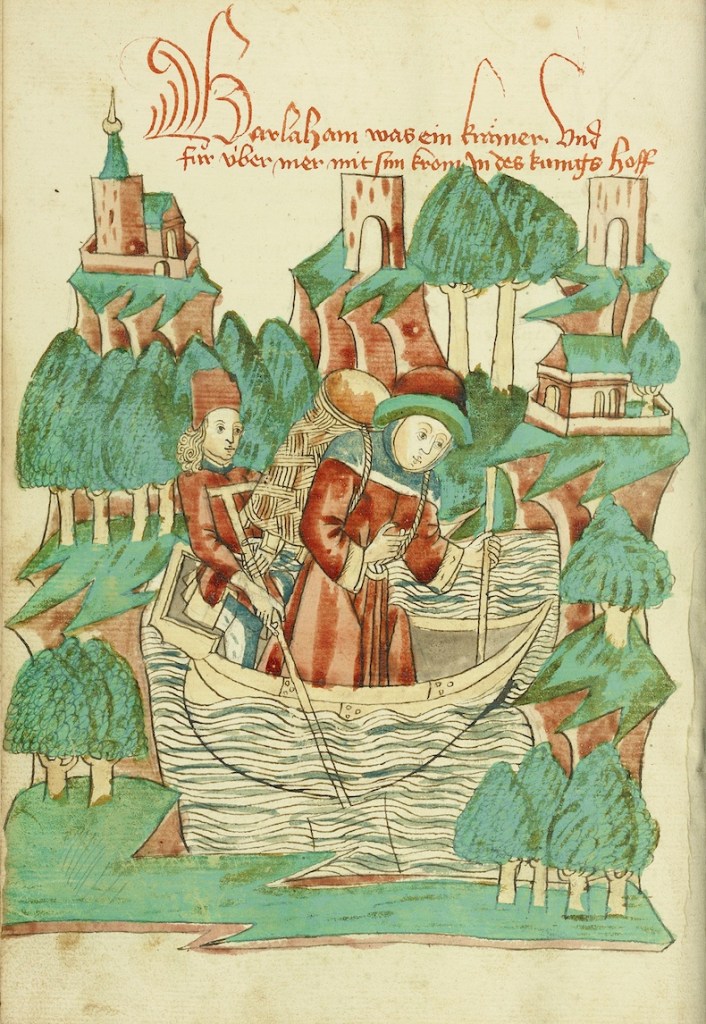 Barlaham was ein kramer. Vnd
für über mer mit sim krom jn des kunigs hoff